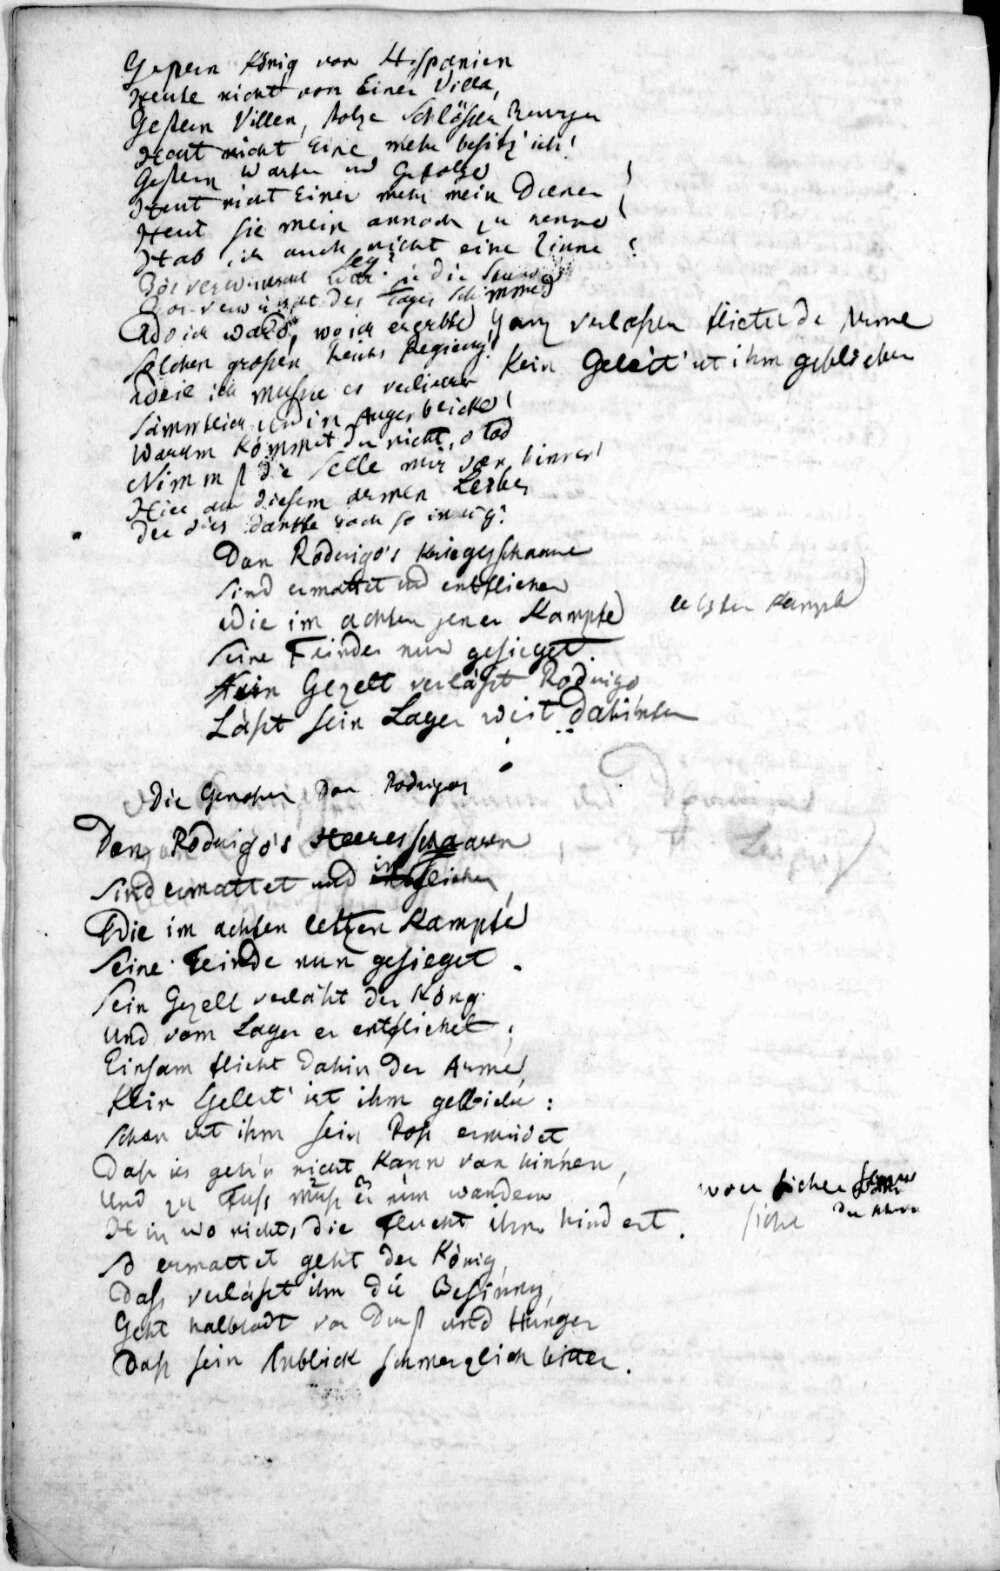 Gestern König von Hispanien
Heute nicht von Einer Villa,
Gestern Villen, stolze Schlösser
Heut nicht Eine mehr besitz' ich!
Gestern und
Heut nicht Einer mehr mein Diener!
Heut sie mein annoch zu nennen
Hab ich auch nicht eine Zinne!
sey die
des Tages
Wo ich ward, wo ich ererbte
Solchen grossen Reichs Regierung!
Ganz verlassen flieht der Arme
Kein Geleit' ist ihm geblieben
Weil ich musste es verlieren
Sämmtlich Augenblicke!
Warum kömmst du nicht, o Tod
Nimmst die Selle mir von hinnen
Hier aus diesem armen Leibe,
Der dies dankte noch so innig!
Don Rodrigo's Kriegesschaaren
Sind ermattet und entfliehen
Wie im achten jener Kämpfe
letzter Kampf
Seine Feinde nun gesieget
Sein Gezelt verlässt Rodrigo
Lässt sein Lager weit dahinten
Die Don Rodrigos
Don Rodrigo's Heeresschaaren
Sind ermattet und
Wie im achten letzten Kampfe
Seine Feinde nun gesieget.
Sein Gezelt verläßt der König
Und vom Lager er entfliehet;
Einsam flieht dahin der Arme,
Kein Geleit' ist ihm geblieben:
Schon ist ihm sein Roß ermüdet
Daß es geh'n nicht kann von hinnen,
Und zu Fuss muß er nun wandern
Hin wo nichts die Flucht ihm hindert.
So ermattet geht der König,
Dass verläßt ihn die Besinnung,
Geht halbtodt vor Durst und Hunger
Daß sein Anblick schmerzlich bitter.